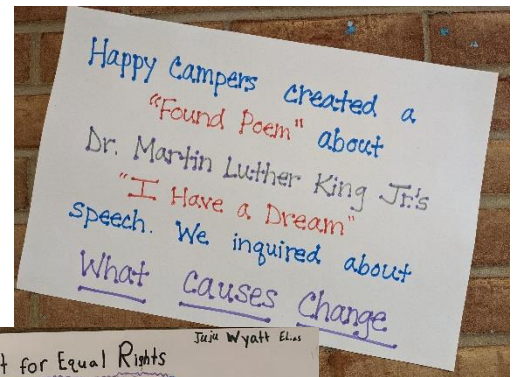 Happy Campers created a
"Found Poem" about
Dr. Martin Luther King Jr.'s
"I Have a Dream"
speech. We inquired about
What causes Change
Juju Wyatt Elias
t for Equal Rights